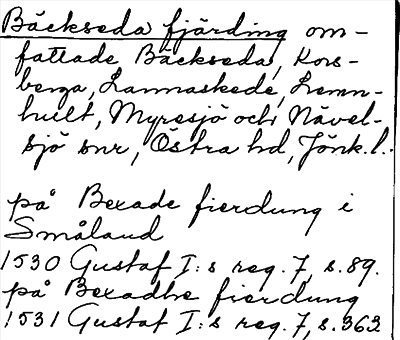 Bäckseda fjärding om-
fattade Bäckseda, Kors-
berga, Lannaskede, Lemn-
hult, Myresjö och Nävel-
sjö snr, Östra hd, Jönk.l.
på Bexade fierdung i
Småland
1530 Gustaf I:s reg. 7, s. 89.
på Bexadhe fierdung
1531 Gustaf I:s reg. 7, s. 363